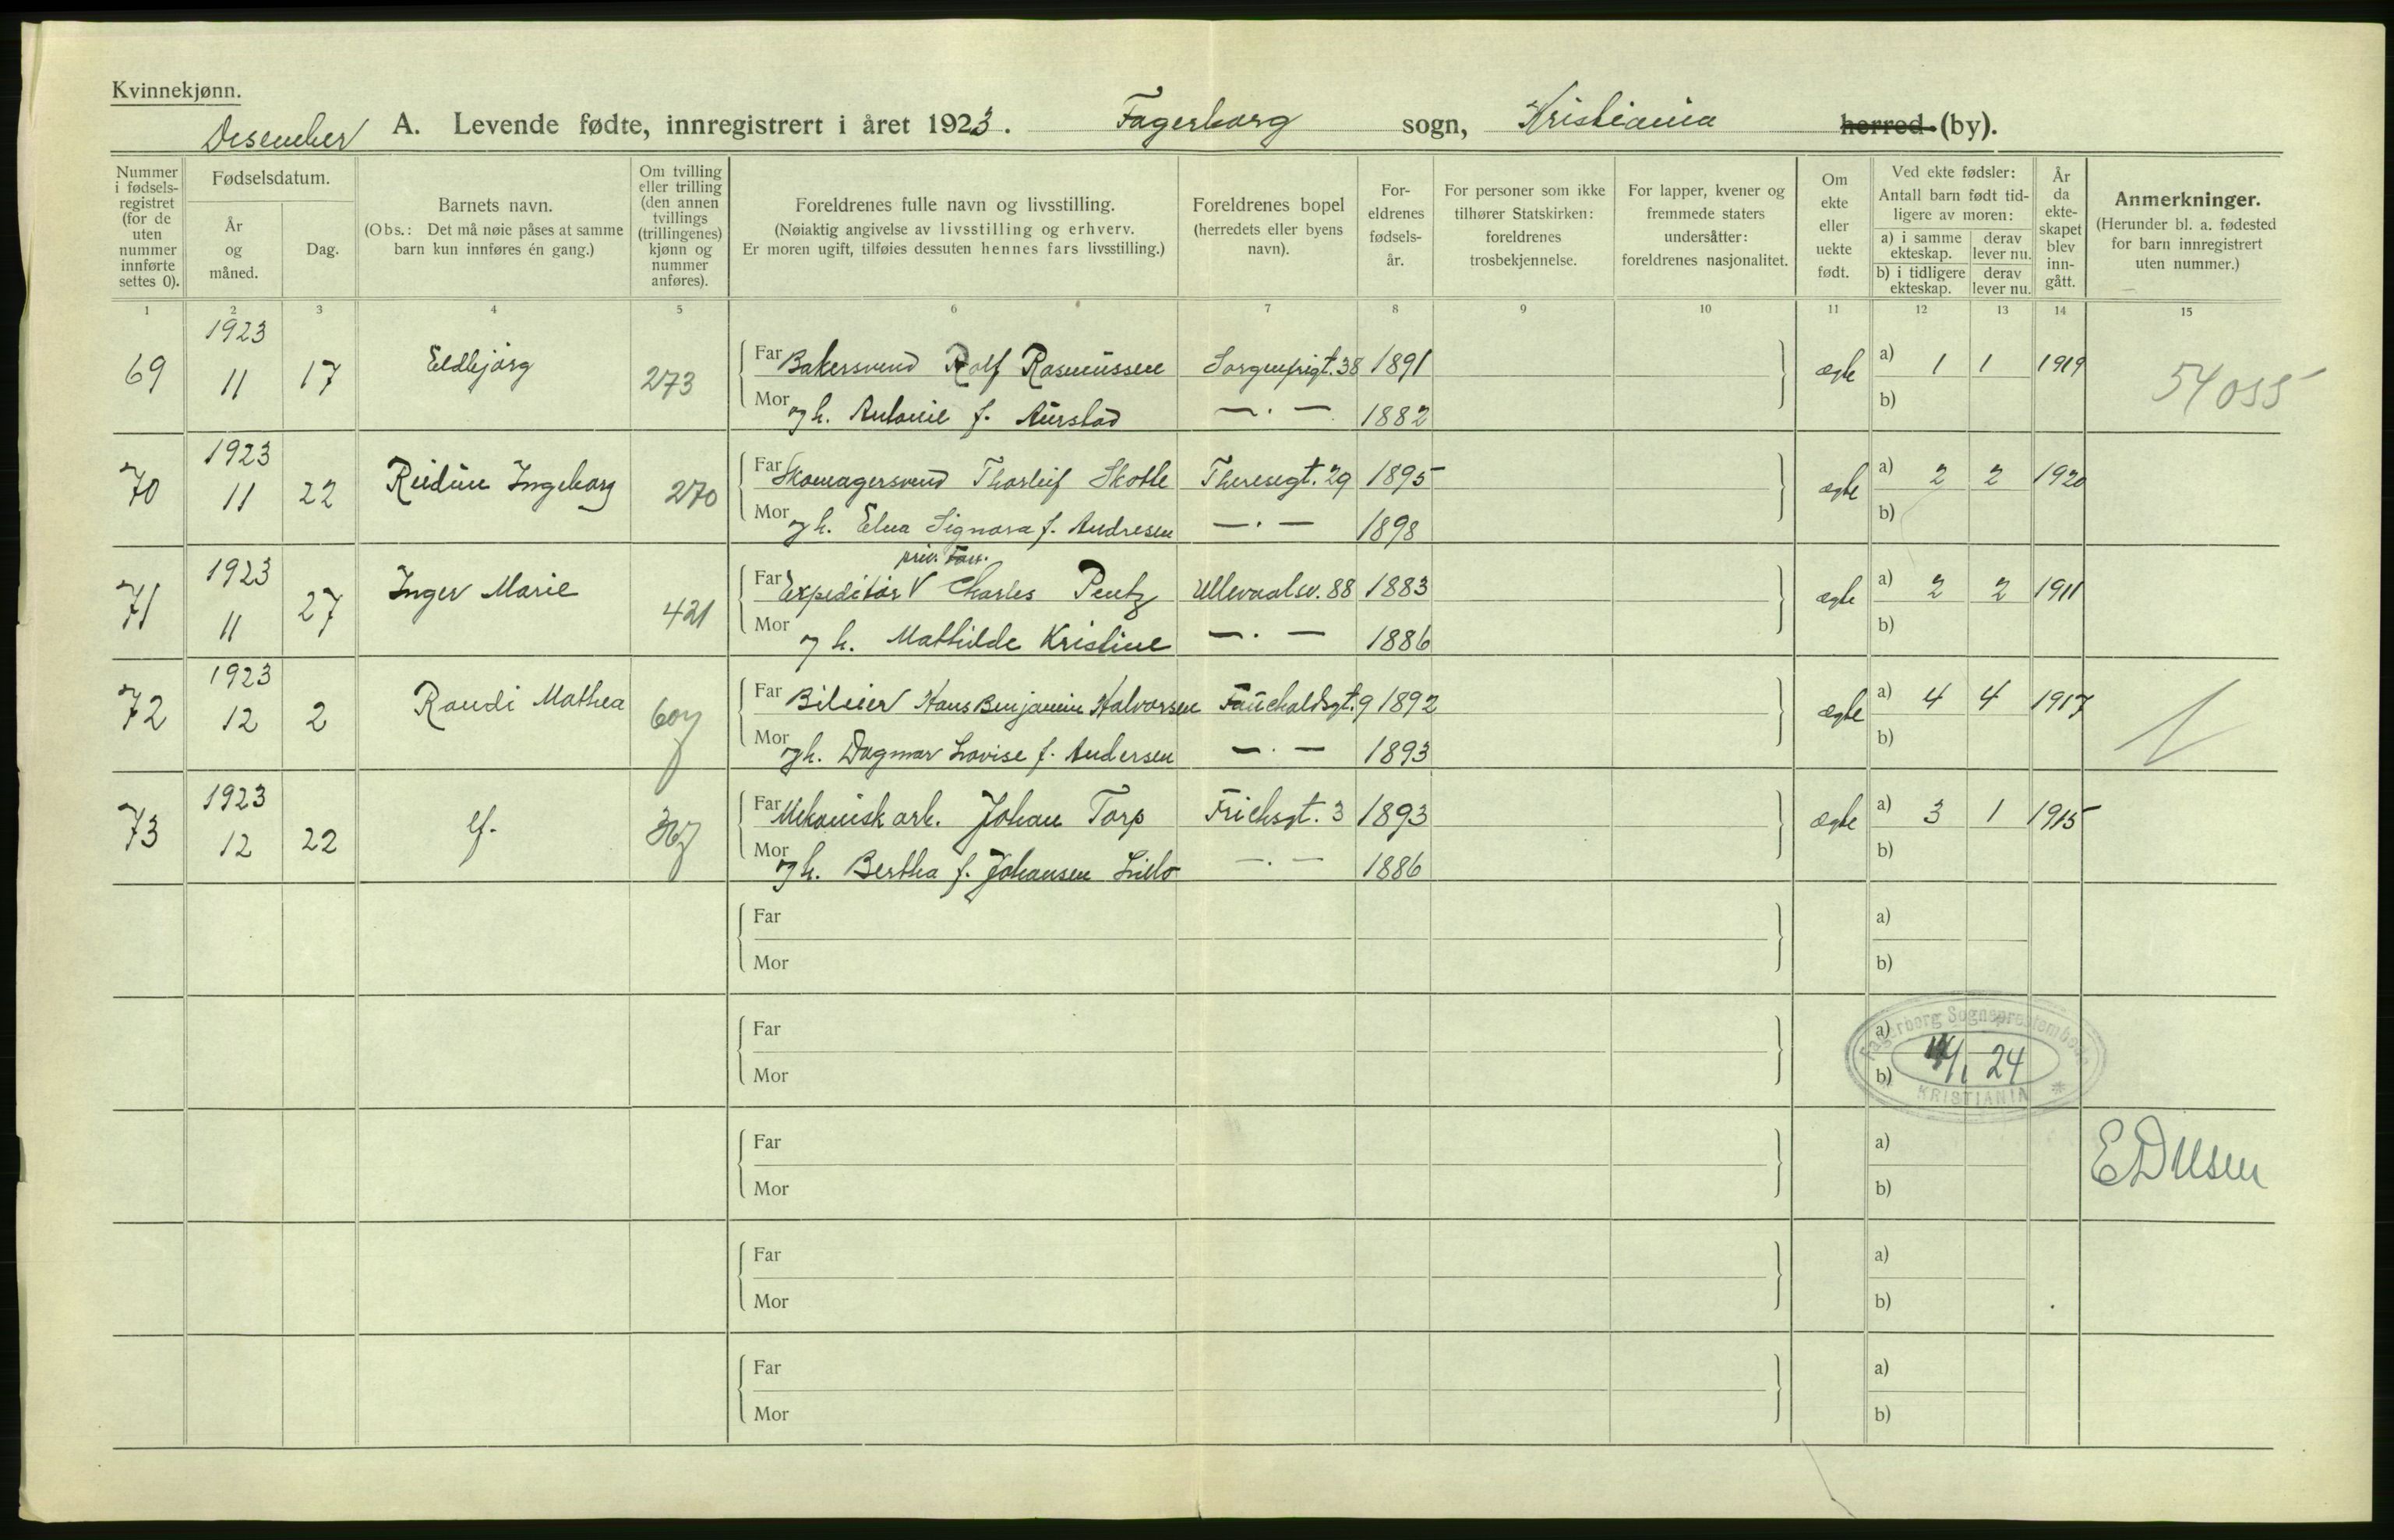 Kvinnekjønn.
Desember A. Levende fødte, innregistrert i året 1923. Fagerborg sogn, Kristiania herred (by).
Nummer i fødselsregistret (for de uten nummer innførte settes 0).
Fødselsdatum.
År og måned.
Dag.
Barnets navn.
(Obs.: Det må nøie påses at samme barn kun innføres én gang.)
Om tvilling eller trilling (den annen tvillings (trillingenes) kjønn og nummer anføres).
Foreldrenes fulle navn og livsstilling.
(Nøiaktig angivelse av livsstilling og erhverv.
Er moren ugift, tilføies dessuten hennes fars livsstilling.)
Foreldrenes bopel (herredets eller byens navn).
Foreldrenes fødselsår.
For personer som ikke tilhører Statskirken: foreldrenes trosbekjennelse.
For lapper, kvener og fremmede staters undersåtter: foreldrenes nasjonalitet.
Om ekte eller uekte født.
Ved ekte fødsler:
Antall barn født tidligere av moren:
a) i samme ekteskap. derav lever nu.
b) i tidligere ekteskap. derav lever nu.
År da ekteskapet blev inngått.
Anmerkninger.
(Herunder bl. a. fødested for barn innregistrert uten nummer.)
1 2 3 4 5 6 7 8 9 10 11 12 13 14 15
69 1923 11 17 Eldbjørg 273 Far Bakersvend Rolf Rasmussen Sorgenfrigt. 38 1891 ægte a) 1 1 1919 54055
Mor og h. Antonie f. Aurstad — . — 1882 b)
70 1923 11 22 Reidun Ingeborg 270 Far Skomagersvend Thorleif Skotte Theresegt. 29 1895 ægte a) 2 2 1920
Mor og h. Elna Signora f. Andresen — . — 1898 b)
priv.
71 1923 11 27 Inger Marie 421 Far Expeditør V Charles Pentz Ullevaalsv. 88 1883 ægte a) 2 2 1911
Mor og h. Mathilde Kristine — . — 1886 b)
72 1923 12 2 Randi Mathea 607 Far Bileier Hans Benjamin Halvorsen Fauchaldsgt. 9 1892 ægte a) 4 4 1917
Mor og h. Dagmar Lovise f. Andersen — . — 1893 b)
73 1923 12 22 Far Mekanisk arb. Johan Torp Frichsgt. 3 1893 ægte a) 3 1 1915
Mor og h. Bertha f. Johansen — . — 1886 b)
Far a)
Mor b)
Far a)
Mor b)
Fagerborg Sogneprestembede
/1 24
KRISTIANIA
Far a)
Mor b)
Far a)
Mor b)
Far a)
Mor b)